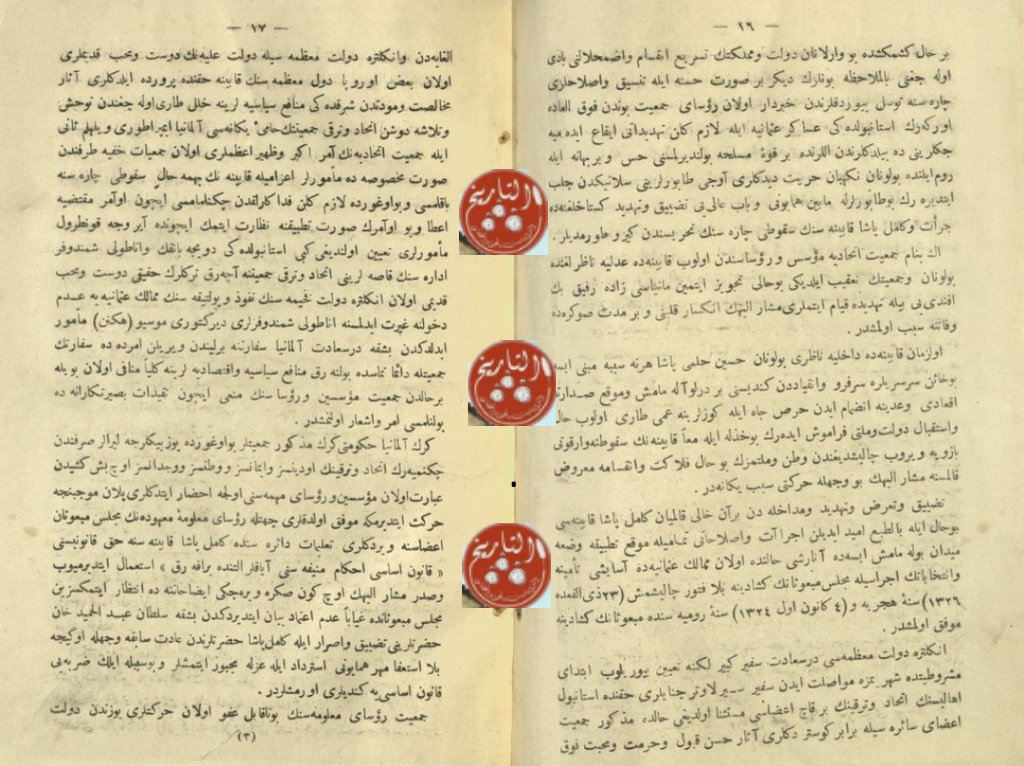 — ١٦ —
بر حال كشمكشده بو وارلانان دولت ومملكتك تسريع انقسام واضمحلالنى بادى
اوله جغنى بالملاحظه بونلرك ديكر بر صورت حسنه ايله تنسيق واصلاحلرى
چاره سنه توسل بيوردقلرندن خبردار اولان رؤساى جمعيت بوندن فوق العاده
اوركه رك استانبولده كى عساكر عثمانيه ايله لازم كلن تهديداتى ايقاع ايده ميه
جكلرينى ده بيلدكلرندن اللرنده بر قوۀ مسلحه بولنديرلمسنى حس و بر بهانه ايله
روم ايلنده بولونان نكهبان حريت ديدكلرى آوجى طابورلرينى سلانيكدن جلب
ايتديره رك بوطابورلرله مابين همايونى و باب عالى بى تضييق وتهديد كستاخلغنده
جرأت وكامل پاشا قابينه سنك سقوطى چاره سنك تحريسندن كيرو طورمديلر .
اك بنام جمعيت اتحاديه مؤسس و رؤساسندن اولوب قابينه ده عدليه ناظرلغنده
بولونان وجمعيتك تعقيب ايلديكى بوحالى تجويز ايتمين مانياسى زاده رفيق بك
افندى بى بيله تهديده قيام ايتملرى مشار اليهك انكسار قلبنى و بر مدت صوكره ده
وفاتنه سبب اولمشدر .
اوزمان قابينه ده داخليه ناظرى بولونان حسين حلمى پاشا هرنه سببه مبنى ايسه
بوخائن سرسريلره سرفرو وانقياددن كنديسنى بر درلو آله مامش وموقع صدارته
اقعادى وعدينه انضمام ايدن حرص جاه ايله كوزلرينه عمى طارى اولوب حال
واستقبال دولت وملتى فراموش ايده رك بوخذله ايله معاً قابينه نك سقوطنه وارقوتى
بازويه ويروب چاليشديغندن وطن وملتمزك بو حال فلاكت وانقسامه معروض
قالمسنه مشار اليهك بو وجهله حركتى سبب يكانه در .
تضييق وتعرض وتهديد ومداخله دن برآن خالى قالميان كامل پاشا قابينه سى
بوحال ايله بالطبع اميد ايديلن اجراآت واصلاحاتى تماميله موقع تطبيقه وضعه
ميدان بوله مامش ايسه ده آتارشى حالنده اولان ممالك عثمانيه ده آسايشى تأمينه
وانتخاباتك اجراسيله مجلس مبعوثانك كشادينه بلا فتور چاليشمش (٢٣ ذى القعده
١٣٢٦) سنۀ هجريه و (٤ كانون اول ١٣٢٤) سنۀ روميه سنده مبعوثانك كشادينه
موفق اولمشدر .
انكلتره دولت معظمه سى درسعادت سفير كبير لكنه تعيين بيوريلوب ابتداى
مشروطيتده شهر يمزه مواصلت ايدن سفير سير لاوتر جنابلرى حقنده استانبول
اهاليسنك اتحاد وترقينك بر قاچ اعضاسى مستثنا اولديغى حالده مذكور جمعيت
اعضاى سائره سيله برابر كوستر دكلرى آثار حسن قبول وحرمت ومحبت فوق
— ١٧ —
الغايه دن وانكلتره دولت معظمه سيله دولت عليه نك دوست ومحب قديملرى
اولان بعض اوروپا دول معظمه سنك قابينه حقنده پرورده ايلدكلرى آثار
مخالصت ومودتدن شرقده كى منافع سياسيه لرينه خلل طارى اوله جغندن توحش
وتلاشه دوشن اتحاد وترقى جمعيتنك حامئ يكانه سى آلمانيا ايمپراطورى ويلهلم ثانى
ايله جمعيت اتحاديه نك آمر اكبر وظهير اعظملرى اولان جمعيات خفيه طرفندن
صورت مخصوصه ده مأمورلر اعزاميله قابينه نك بهمه حال سقوطى چاره سنه
باقلمسى وبواوغورده لازم كلن فداكارلقدن چكنلمامسى ايچون اوامر مقتضيه
اعطا وبو اوامرك صورت تطبيقنه نظارت ايتمك ايچونده آيروجه قونطرول
مأمورلرى تعيين اولنديغى كبى استانبولده كى دويچه بانقك واناطولى شمندوفر
اداره سنك قاصه لرينى اتحاد وترقى جمعيتنه آچه رق تركلرك حقيقى دوست ومحب
قديمى اولان انكلتره دولت فخيمه سنك نفوذ وپولتيقه سنك ممالك عثمانيه يه عدم
دخولنه غيرت ايدلمسنه اناطولى شمندوفرلرى ديركتورى موسيو (هكنن) مأمور
ايدلدكدن بشقه درسعادت آلمانيا سفارتنه برليندن ويريلن امرده ده سفارتك
جمعيتله دائما تماسده بولنه رق منافع سياسيه واقتصاديه لرينه كلياً منافى اولان بويله
برحالدن جمعيت مؤسسين ورؤساسنك منعى ايچون تقيدات بصيرتكارانه ده
بولنلمسى امر واشعار اولنمشدر .
كرك آلمانيا حكومتى كرك مذكور جمعيتلر بواوغورده يوز بيكلرجه ليرالر صرفندن
چكنميه رك اتحاد وترقينك اودينسز وايمانسز ووطنسز ووجدانسز اوچ بش كشيدن
عبارت اولان مؤسسين ورؤساى مهمه سنى اولجه احضار ايتدكلرى پلان موجبنجه
حركت ايتديرمكه موفق اولدقلرى جهتله رؤساى معلومۀ معهوده نك مجلس مبعوثان
اعضاسنه ويردكلرى تعليمات دائره سنده كامل پاشا قابينه سنه حق قانونيسنى
« قانون اساسى احكام منيفه سنى آياقلر التنده براقه رق » استعمال ايتديرميوب
وصدر مشار اليهك اوچ كون صكره ويره جكى ايضاحاتنه ده انتظار ايتمكسزين
مجلس مبعوثانده غياباً عدم اعتماد بيان ايتديردكدن بشقه سلطان عبد الحميد خان
حضرتلرينى تضييق واصرار ايله كامل پاشا حضرتلرندن عادت سابقه وجهله اوكيجه
بلا استعفا مهر همايونى استرداد ايله عزله مجبور ايتمشلر وبوسيله ايلك ضربه يى
قانون اساسى يه كنديلرى اورمشلردر .
جمعيت رؤساى معلومه سنك بوناقابل عفو اولان حركتلرى يوزندن دولت
(٣)
التاريخ
التاريخ
التاريخ